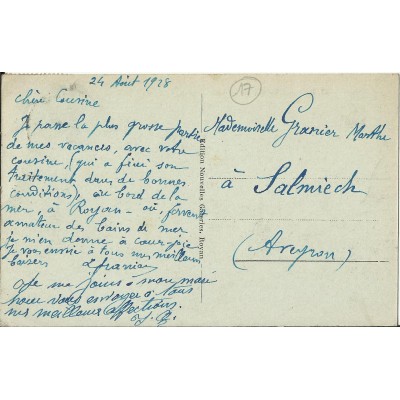 24 Août 1928
17
Chère Cousine
Je passe la plus grosse partie
de mes vacances, avec votre
cousine, (qui a fini son
traitement dans de bonnes
conditions), au bord de la
mer, à Royan - où, fervent
amateur des bains de mer
je m'en donne à cœur joie
Je vous envoie à tous mes meilleurs
baisers
Je me joins à mon mari
pour vous envoyer à tous
mes meilleures affections
Edition Nouvelles Galeries, Royan
Mademoiselle Granier Marthe
à
Salmiech
(Aveyron)